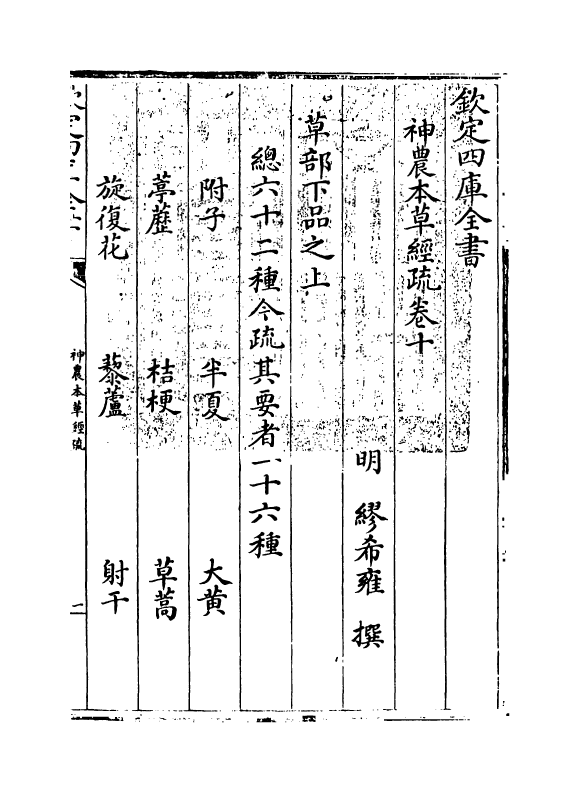 欽定四庫全書
神農本草經疏卷十
明 繆希雍 撰
草部下品之上
總六十二種今疏其要者一十六種
附子 半夏 大黃
葶藶 桔梗 草蒿
旋復花 藜蘆 射干
神農本草經疏